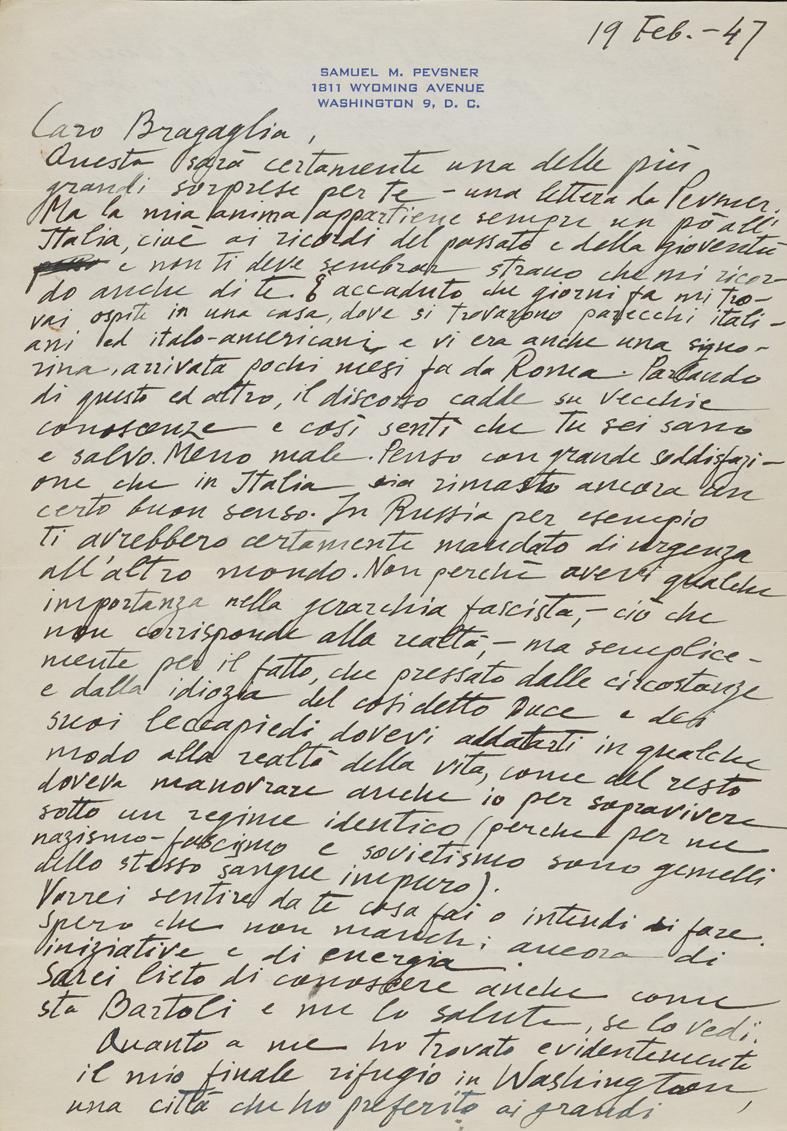 19 Feb. - 47
SAMUEL M. PEVSNER
1811 WYOMING AVENUE
WASHINGTON 9, D. C.
Caro Bragaglia,
Questa sarà certamente una delle più
grandi sorprese per te - una lettera da Pevsner.
Ma la mia anima appartiene sempre un pò all'
Italia, cioè ai ricordi del passato e della gioventù
e non ti deve sembrar strano che mi ricor-
do anche di te. È accaduto che giorni fa mi tro-
vai ospite in una casa, dove si trovarono parecchi itali-
ani ed italo-americani e vi era anche una signo-
rina, arrivata pochi mesi fa da Roma. Parlando
di questo ed altro, il discorso cadde su vecchie
conoscenze e così sentì che tu sei sano
e salvo. Meno male. Penso con grande soddisfazi-
one che in Italia sia rimasto ancora un
certo buon senso. In Russia per esempio
ti avrebbero certamente mandato di urgenza
all'altro mondo. Non perchè avevi qualche
importanza nella gerarchia fascista, - ciò che
non corrisponde alla realtà, - ma semplice-
mente per il fatto, che pressato dalle circostanze
e dalla idiozia del cosidetto Duce e dei
suoi leccapiedi, dovevi addatarti in qualche
modo alla realtà della vita, come del resto
doveva manovrare anche io per sopravivere
sotto un regime identico (perchè per me
nazismo-fascismo e sovietismo sono gemelli
dello stesso sangue impuro).
Vorrei sentire da te cosa fai o intendi di fare.
Spero che non manchi ancora di
iniziative e di energia.
Sarei lieto di conoscere anche come
sta Bartoli e me lo salute, se lo vedi.
Quanto a me ho trovato evidentemente
il mio finale rifugio in Washington,
una città che ho preferito ai grandi